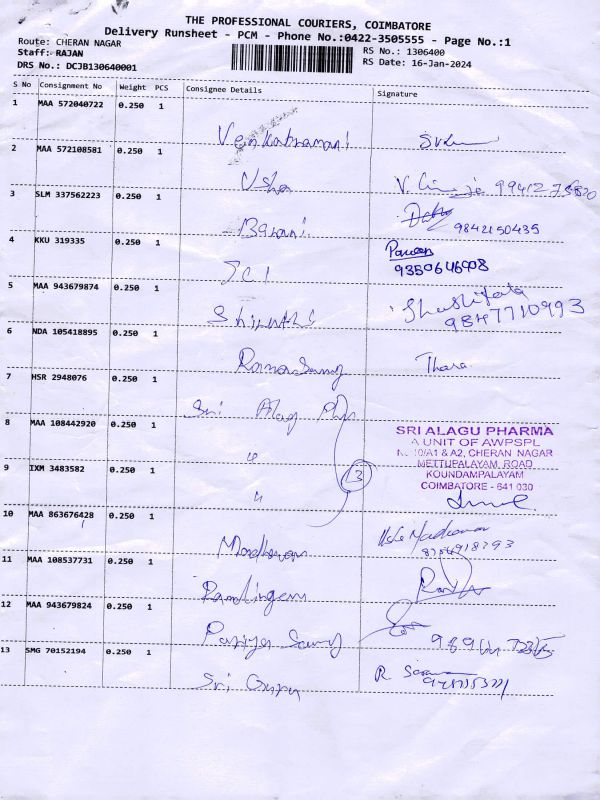 THE PROFESSIONAL COURIERS, COIMBATORE
Delivery Runsheet - PCM - Phone No.:0422-3505555 - Page No.:1
Route: CHERAN NAGAR
Staff: RAJAN
RS No.: 1306400
DRS No.: DCJB130640001
RS Date: 16-Jan-2024
S No Consignment No Weight PCS Consignee Details Signature
1 MAA 572040722 0.250 1
Venkatramani
2 MAA 572108581 0.250 1
Usha V. 99412 75820
3 SLM 337562223 0.250 1
Barani 9842150435
4 KKU 319335 0.250 1
JCI Parveen
9350646908
5 MAA 943679874 0.250 1
Shashikala
9847710993
6 NDA 105418895 0.250 1
Ramasamy Thara
7 HSR 2948076 0.250 1
Sri Alag Phr
8 MAA 108442920 0.250 1
SRI ALAGU PHARMA
A UNIT OF AWPSPL
10/A1 & A2, CHERAN NAGAR
METTUPALAYAM ROAD
KOUNDAMPALAYAM
COIMBATORE - 641 030
"
9 IXM 3483582 0.250 1
" 3
10 MAA 863676428 0.250 1
Madhavan
11 MAA 108537731 0.250 1
Ramlingam
12 MAA 943679824 0.250 1
Pariya Samy
13 SMG 70152194 0.250 1
Sri Guru R.